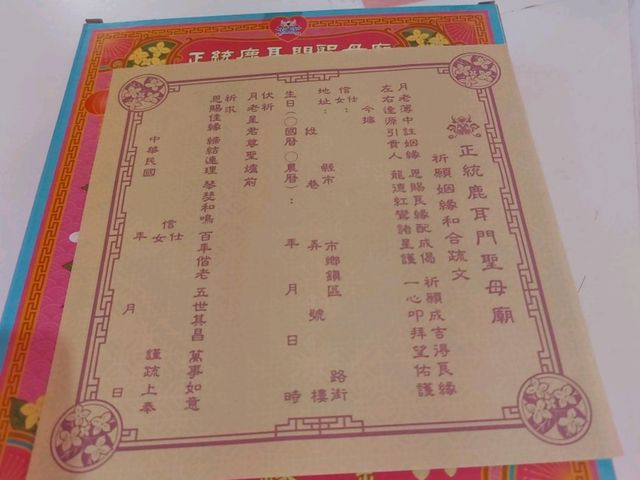 正統鹿耳門聖母廟
正統鹿耳門聖母廟
祈願姻緣和合疏文
月老薄中註姻緣 恩賜良緣配成偶 祈願成吉得良緣
左右逢源引貴人 龍德紅鸞諸星護 一心叩拜望佑護
今據
信仕女：
地址： 縣市 市鄉鎮區 路街
段 巷 弄 號 樓
生日（○國曆 ○農曆）： 年 月 日 時
伏祈
月老星君尊聖爐前
祈求
恩賜佳緣 締結連理 琴瑟和鳴 百年偕老 五世其昌 萬事如意
信仕女 謹疏上奉
中華民國 年 月 日